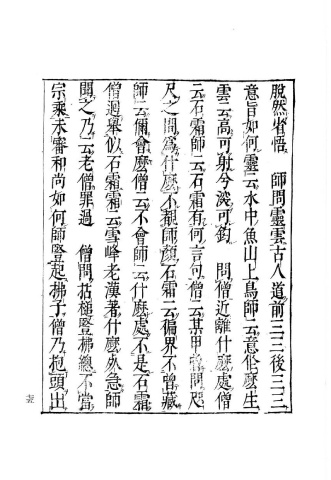 脫然省悟　師問靈雲古人道前三三後三三
意旨如何靈云水中魚山上鳥師云意作麼生
雲云高可射兮深可釣　問僧近離什麼處僧
云石霜師云石霜有何言句僧云某甲曾問咫
尺之間爲什麼不覩師顏石霜云徧界不曾藏
師云儞會麼僧云不會師云什麼處不是石霜
僧迴舉似石霜霜云雪峰老漢著什麼死急師
聞之乃云老僧罪過　僧問拈槌竪拂總不當
宗乘未審和尚如何師竪起拂子僧乃抱頭出